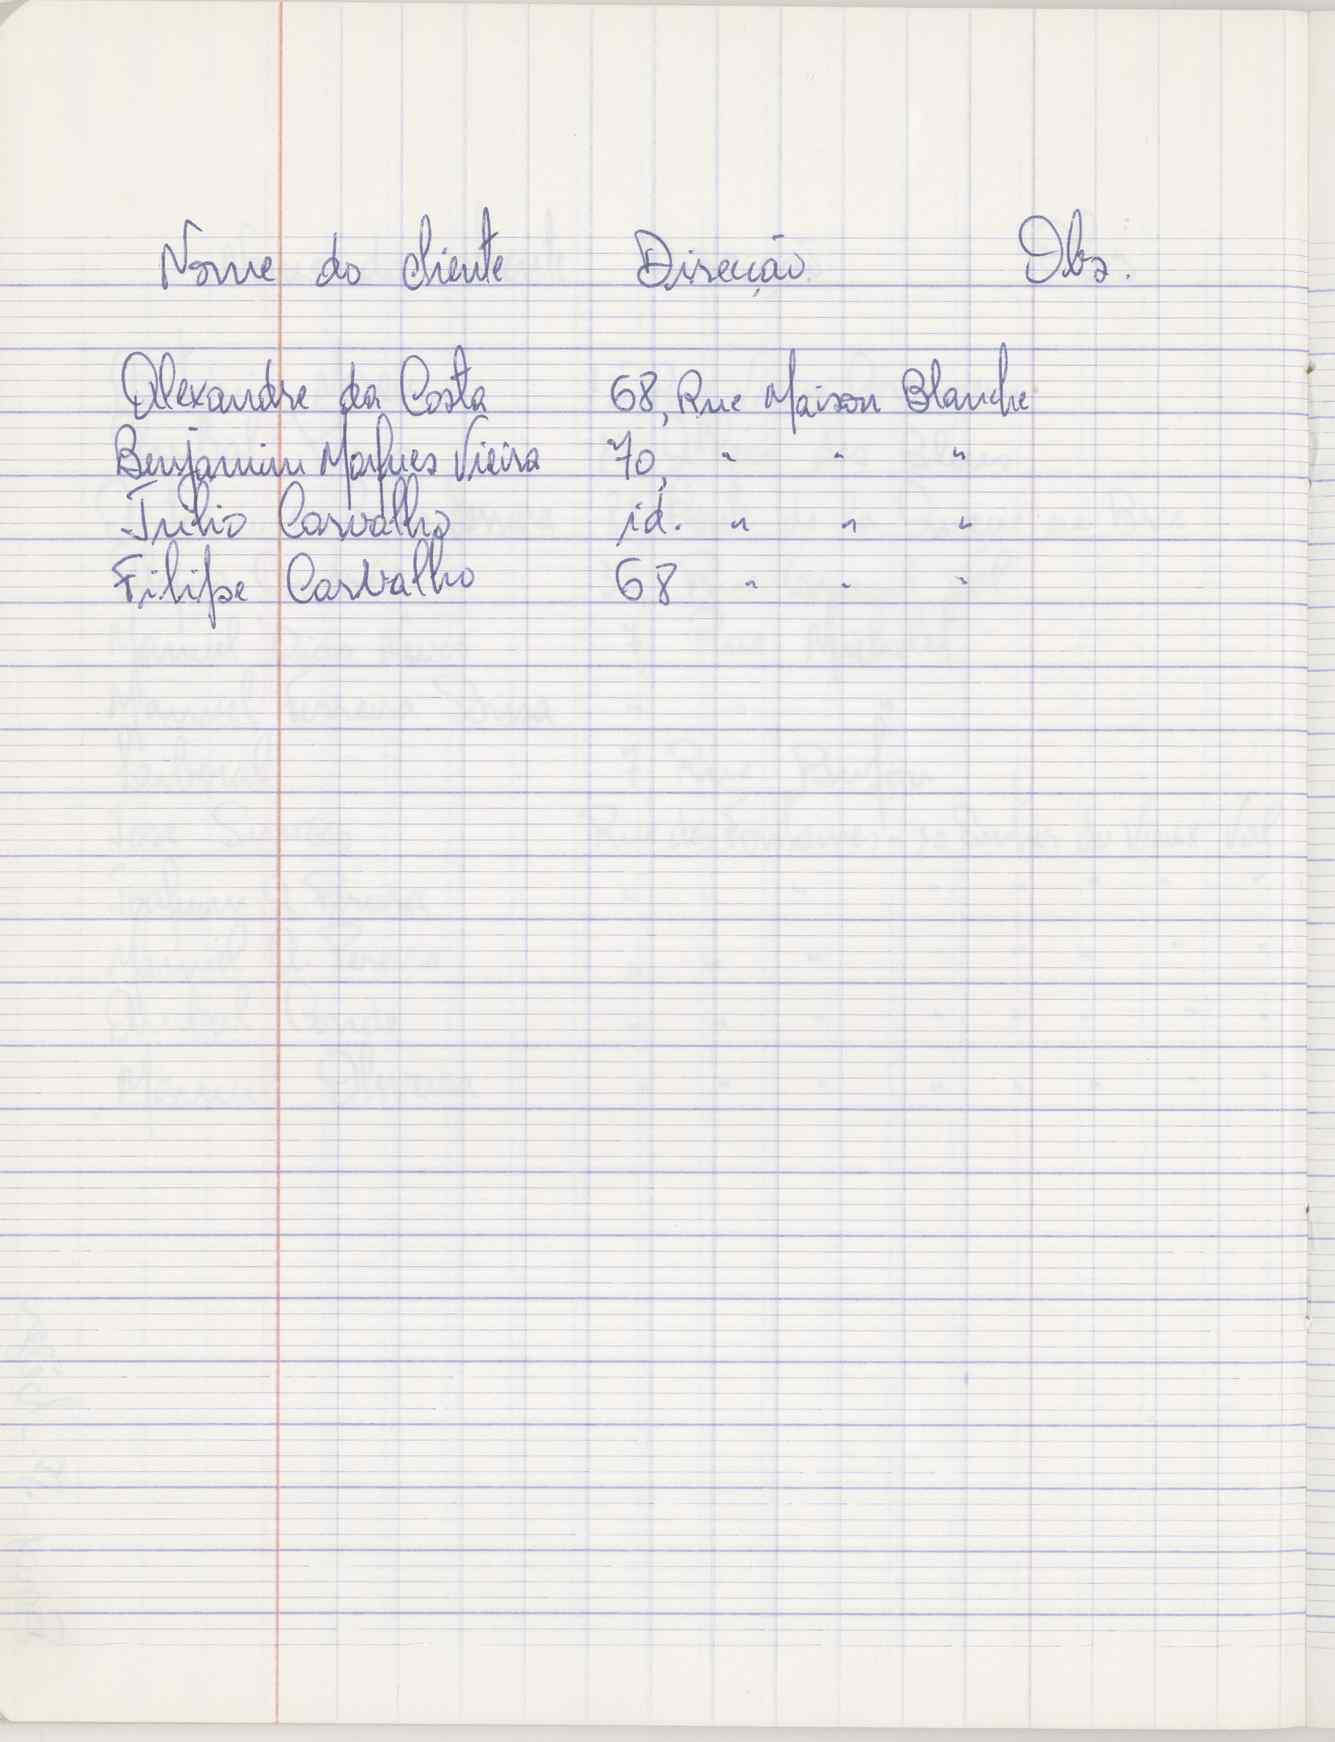 Nome do cliente Direcção Obs.
Alexandre da Costa 68, Rue Maison Blanche
Benjamim Marques Vieira 70, " " "
Júlio Carvalho id. " " "
Filipe Carvalho 68 " " "